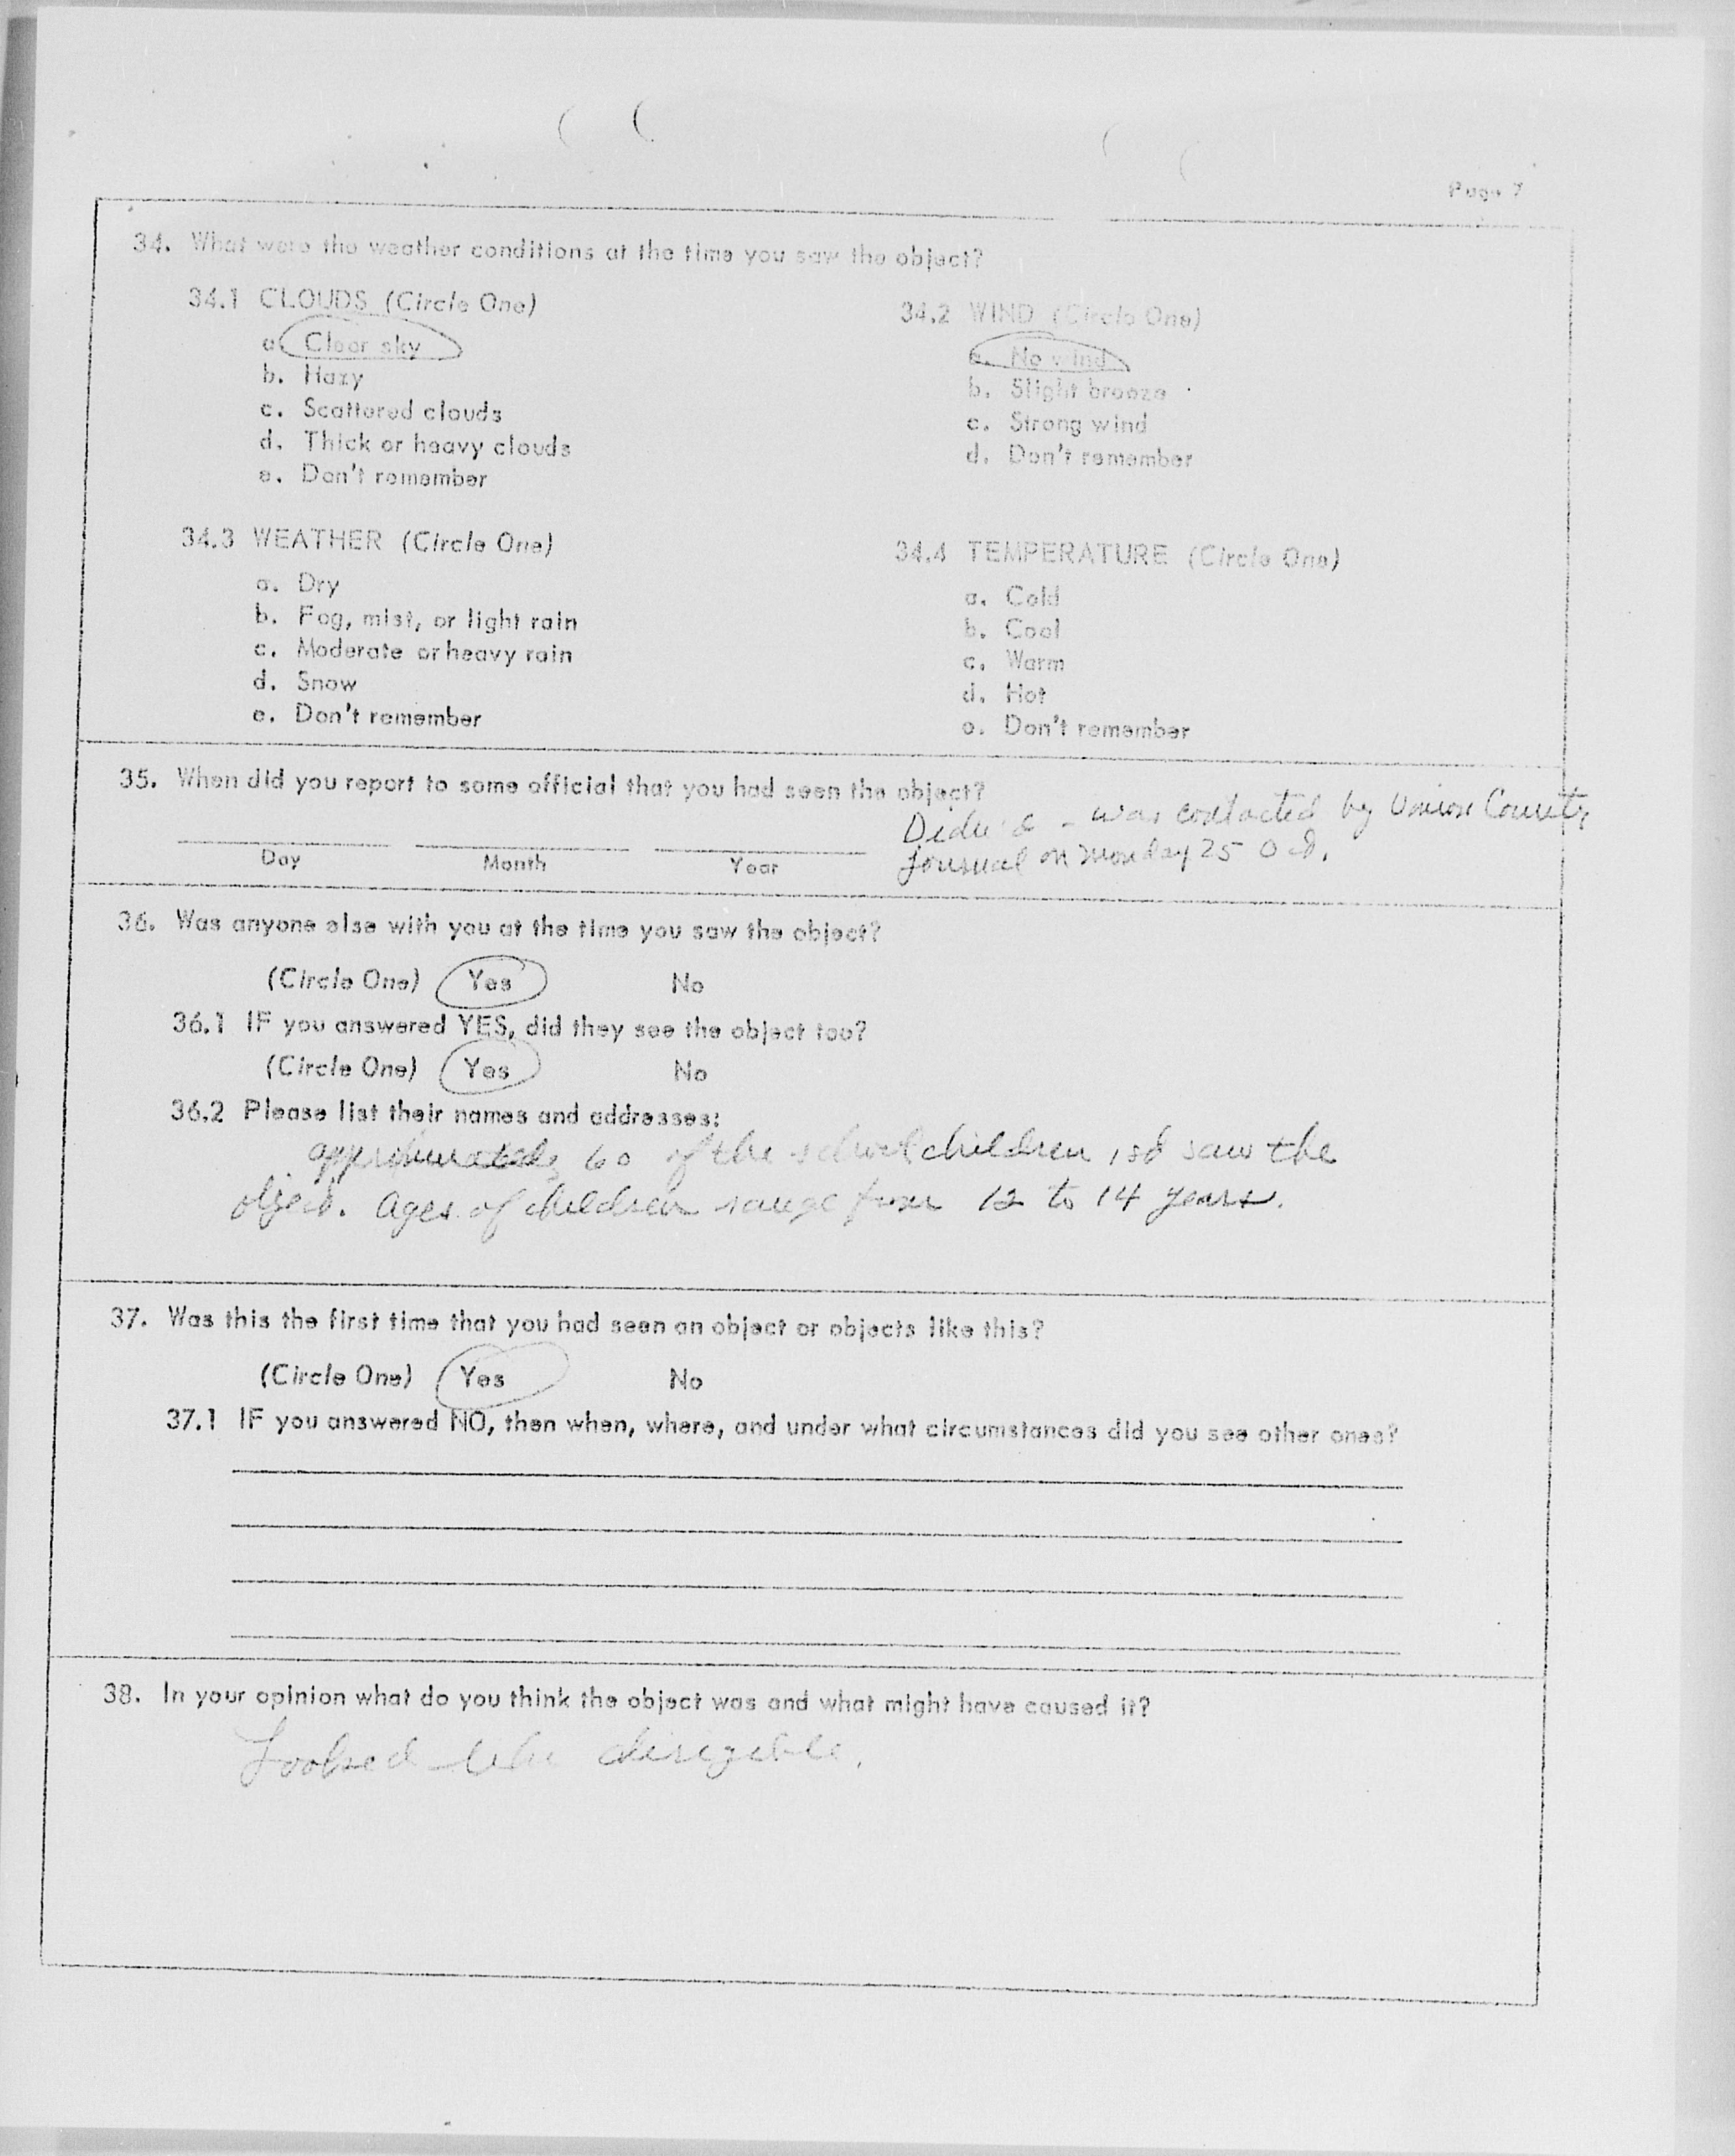 Page 7
34. What were the weather conditions at the time you saw the object?
34.1 CLOUDS (Circle One)
a. Clear sky
b. Hazy
c. Scattered clouds
d. Thick or heavy clouds
e. Don't remember
34.2 WIND (Circle One)
a. No wind
b. Slight breeze
c. Strong wind
d. Don't remember
34.3 WEATHER (Circle One)
a. Dry
b. Fog, mist, or light rain
c. Moderate or heavy rain
d. Snow
e. Don't remember
34.4 TEMPERATURE (Circle One)
a. Cold
b. Cool
c. Warm
d. Hot
e. Don't remember
35. When did you report to some official that you had seen the object?
Didn't - was contacted by Union County
Journal on Monday 25 Oct.
Day Month Year
36. Was anyone else with you at the time you saw the object?
(Circle One) Yes No
36.1 IF you answered YES, did they see the object too?
(Circle One) Yes No
36.2 Please list their names and addresses:
approximately 60 of the school children saw the
object. Ages of children range from 12 to 14 years.
37. Was this the first time that you had seen an object or objects like this?
(Circle One) Yes No
37.1 IF you answered NO, then when, where, and under what circumstances did you see other ones?
38. In your opinion what do you think the object was and what might have caused it?
Looked like dirigible.